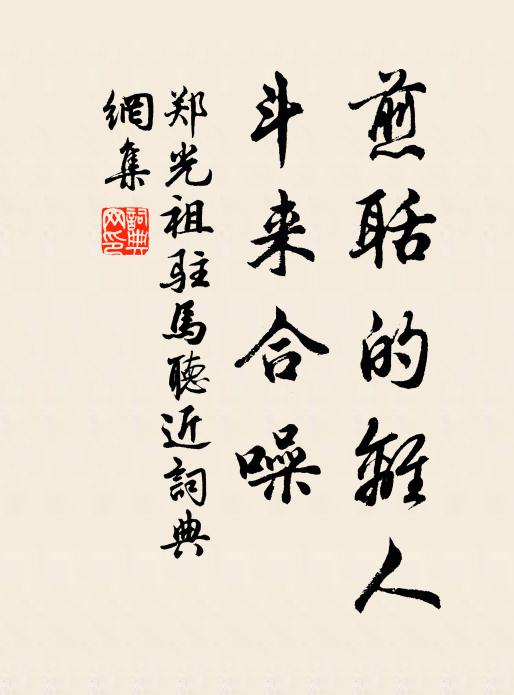 煎聒的離人
斗来合噪
郑光祖驻馬聽近詞典
網集
詞典
网印